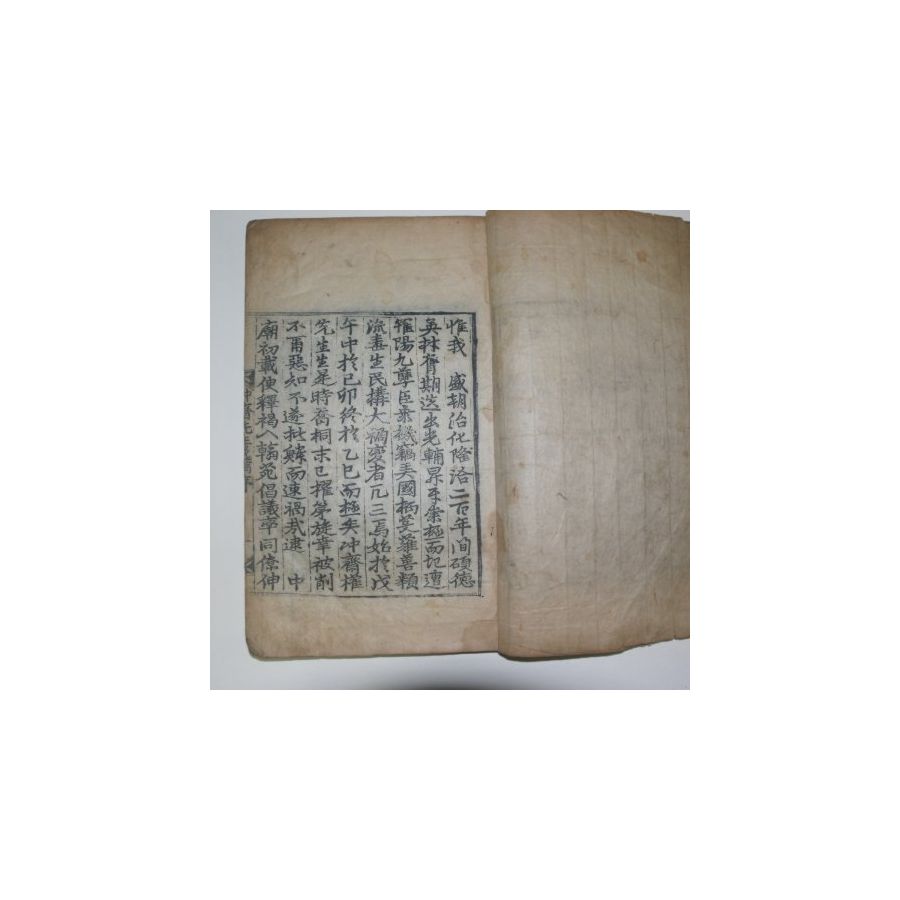 惟我 盛朝治化隆洽二百年間碩德
英材膺期迭出光輔昇平業極而圮遭
罹陽九孽臣乘機竊弄國柄芟薙善類
流毒生民搆大禍變者凡三焉始於戊
午中於己卯終於乙巳而極矣冲齋權
先生生是時喬桐末已擢第旋牽被削
不爾惡知不遂批鱗而速禍哉逮 中
廟初載使釋褐入翰苑倡議率同僚伸
冲齋先生